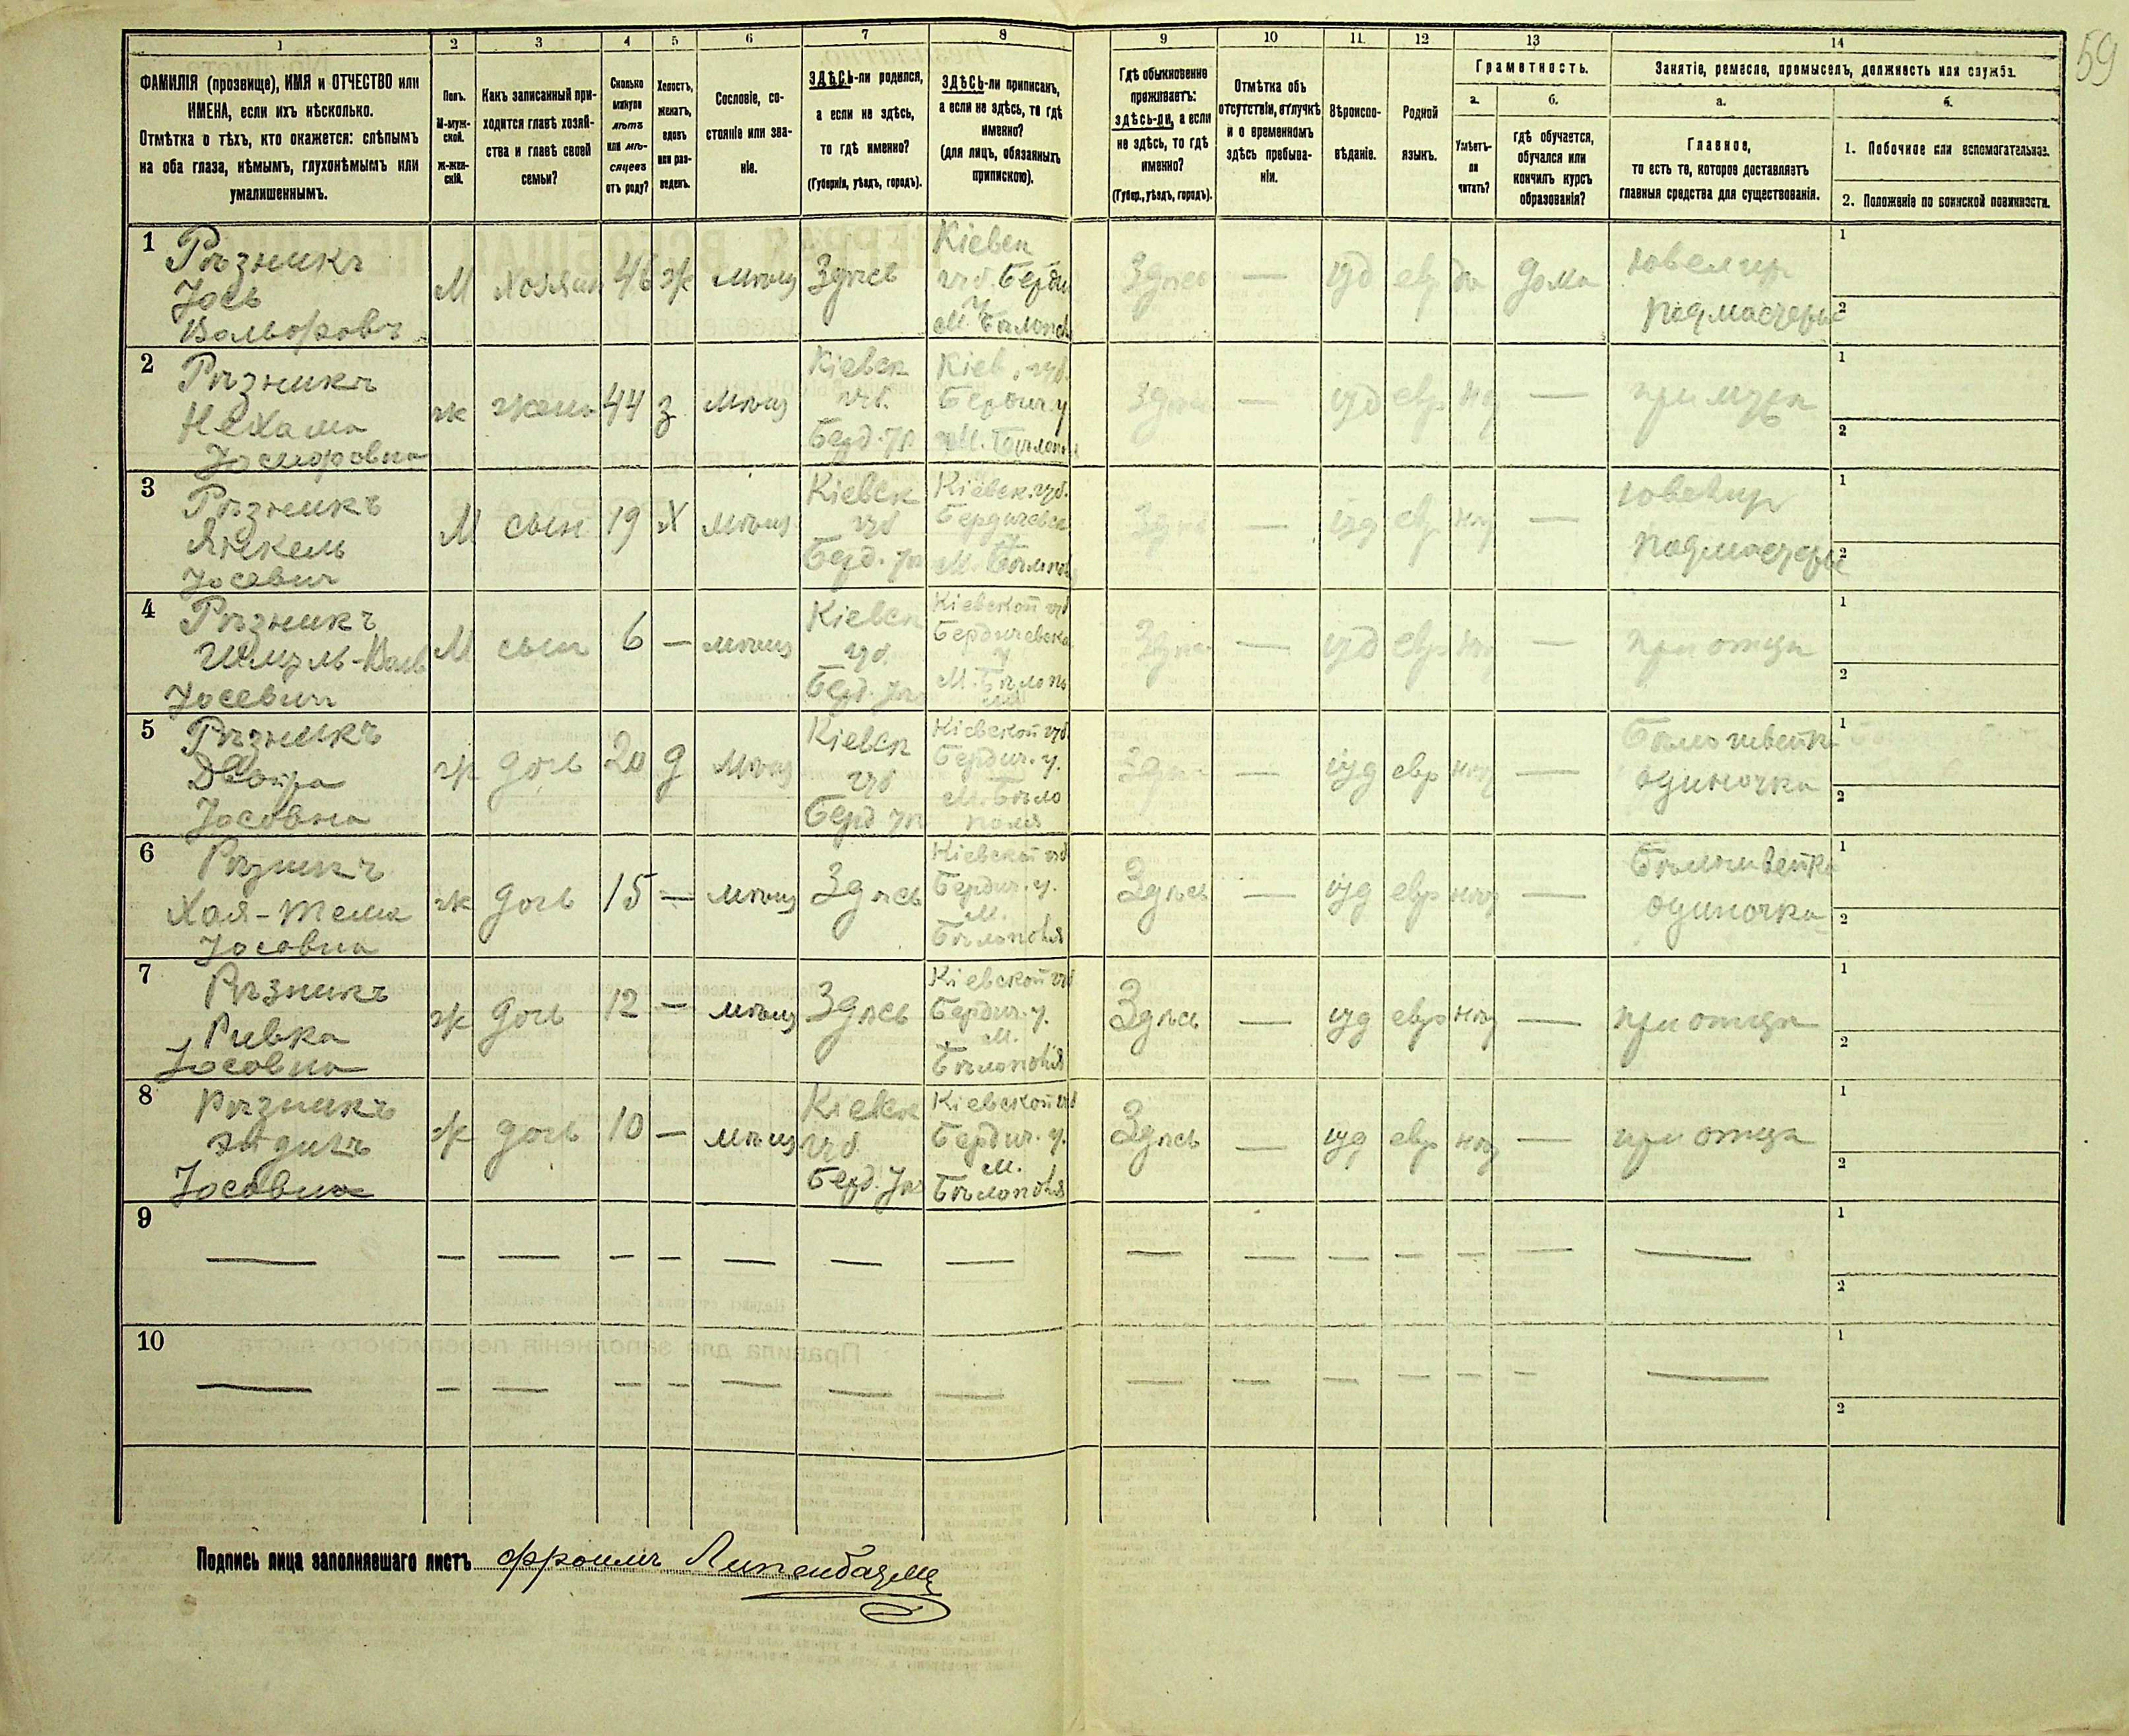 59
1 2 3 4 5 6 7 8 9 10 11 12 13 14
ФАМИЛІЯ (прозвище), ИМЯ и ОТЧЕСТВО или
ИМЕНА, если ихъ нѣсколько.
Отмѣтка о тѣхъ, кто окажется: слѣпымъ
на оба глаза, нѣмымъ, глухонѣмымъ или
умалишеннымъ.
Полъ.
М-муж-
ской.
ж-жен-
скій.
Какъ записанный при-
ходится главѣ хозяй-
ства и главѣ своей
семьи?
Сколько
минуло
лѣтъ
или мѣ-
сяцевъ
отъ роду?
Холостъ,
женатъ,
вдовъ
или раз-
веденъ.
Сословіе, со-
стояніе или зва-
ніе.
ЗДѢСЬ-ли родился,
а если не здѣсь,
то гдѣ именно?
(Губернія, уѣздъ, городъ).
ЗДѢСЬ-ли приписанъ,
а если не здѣсь, то гдѣ
именно?
(для лицъ, обязанныхъ
припискою).
Гдѣ обыкновенно
проживаетъ:
здѣсь-ли, а если
не здѣсь, то гдѣ
именно?
(Губер., уѣздъ, городъ).
Отмѣтка объ
отсутствіи, отлучкѣ
и о временномъ
здѣсь пребыва-
ніи.
Вѣроиспо-
вѣданіе.
Родной
языкъ.
Грамотность.
а.
Умѣетъ-
ли
читать?
б.
гдѣ обучается,
обучался или
кончилъ курсъ
образованія?
Занятіе, ремесло, промыселъ, должность или служба.
а.
Главное,
то есть то, которое доставляетъ
главныя средства для существованія.
б.
1. Побочное или вспомогательное.
2. Положеніе по воинской повинности.
1 Рѣзникъ
Іось
Вольфовъ
М
Хозяин
46
ж
мѣщ
Здѣсь
Кіевск
губ. Берди
у
М. Бѣлопол
Здѣсь
—
іуд
евр
да
дома
ювелир
подмастерье
1
2
2 Рѣзникъ
Нехама
ж
жена
44
з
мѣщ
Кіевск
губ.
Берд. уѣ
Кіев. губ.
Бердич. у
М. Бѣлопол
Здѣсь
—
іуд
евр
нѣт
—
при мужѣ
1
2
3 Рѣзникъ
Янкель
Іосевич
М
сын
19
х
мѣщ
Кіевск
губ
Берд. уѣ
Кіевск. губ.
Бердичевск
у
М. Бѣлопол
Здѣсь
—
іуд
евр
нѣт
—
ювелир
подмастерье
1
2
4 Рѣзникъ
Шмуль-Вольф
Іосевич
М
сын
6
—
мѣщ
Кіевск
губ.
Берд. уѣз
Кіевской губ
Бердичевско
у
М. Бѣлопо
лья
Здѣсь
—
іуд
евр
нѣт
—
при отцѣ
1
2
5 Рѣзникъ
Двойра
Іосовна
ж
дочь
20
д
мѣщ
Кіевск
губ
Берд уѣ
Кіевской губ
Бердич. у.
М. Бѣло
полья
Здѣсь
—
іуд
евр
нѣт
—
Бѣлошвейка
одиночка
1
2
6 Рѣзникъ
Хая-Тема
Іосовна
ж
дочь
15
—
мѣщ
Здѣсь
Кіевской губ
Бердич. у.
М.
Бѣлополья
Здѣсь
—
іуд
евр
нѣт
—
Бѣлошвейка
одиночка
1
2
7 Рѣзникъ
Ривка
Іосовна
ж
дочь
12
—
мѣщ
Здѣсь
Кіевской губ
Бердич. у.
М.
Бѣлополья
Здѣсь
—
іуд
евр
нѣт
—
при отцѣ
1
2
8 Рѣзникъ
Іосовна
ж
дочь
10
—
мѣщ
Кіевск
губ.
Берд. уѣ
Кіевской губ
Бердич. у.
М.
Бѣлополья
Здѣсь
—
іуд
евр
нѣт
—
при отцѣ
1
2
9 — — — — — — — — — — — — — — —
1
2
10 — — — — — — — — — — — — — — —
1
2
Подпись лица заполнявшаго листъ